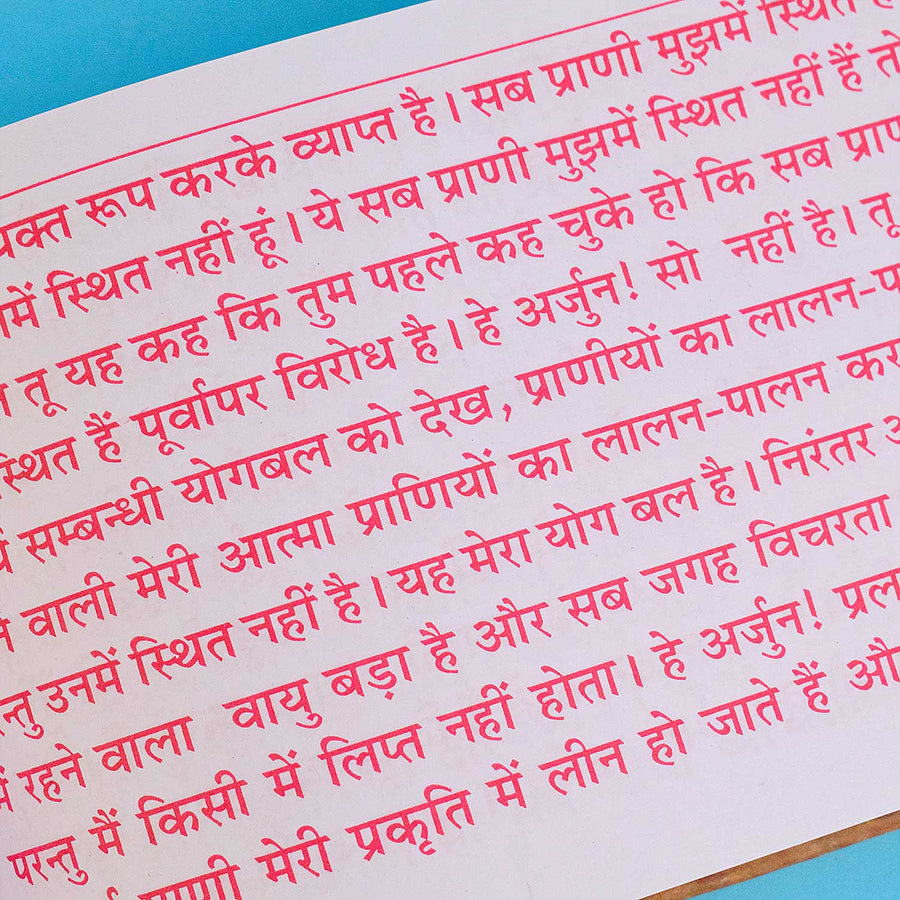 रूप करके व्याप्त है। सब प्राणी मुझमें स्थित
स्थित नहीं हूं। ये सब प्राणी मुझमें स्थित नहीं हैं
तू यह कह कि तुम पहले कह चुके हो कि सब
हैं पूर्वापर विरोध है। हे अर्जुन! सो नहीं है। तू
सम्बन्धी योगबल को देख, प्राणीयों का लालन-
वाली मेरी आत्मा प्राणियों का लालन-पालन
उनमें स्थित नहीं है। यह मेरा योग बल है। निरंतर
रहने वाला वायु बड़ा है और सब जगह विचरता
परन्तु मैं किसी में लिप्त नहीं होता। हे अर्जुन!
मेरी प्रकृति में लीन हो जाते हैं